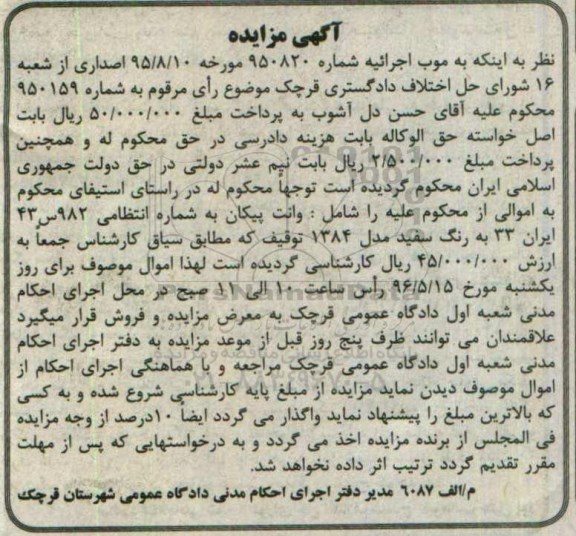 آگهی مزایده
نظر به اینکه به موب اجرائیه شماره ۹۵۰۸۲۰ مورخه ۹۵/۸/۱۰ اصداری از شعبه
۱۶ شورای حل اختلاف دادگستری قرچک موضوع رأی مرقوم به شماره ۹۵۰۱۵۹
محکوم علیه آقای حسن دل آشوب به پرداخت مبلغ ۵۰/۰۰۰/۰۰۰ ریال بابت
اصل خواسته حق الوکاله بابت هزینه دادرسی در حق محکوم له و همچنین
پرداخت مبلغ ۲/۵۰۰/۰۰۰ ریال بابت نیم عشر دولتی در حق دولت جمهوری
اسلامی ایران محکوم گردیده است توجهاً محکوم له در راستای استیفای محکوم
به اموالی از محکوم علیه را شامل : وانت پیکان به شماره انتظامی ۹۸۲س۴۳
ایران ۳۳ به رنگ سفید مدل ۱۳۸۴ توقیف که مطابق سیاق کارشناس جمعاً به
ارزش ۴۵/۰۰۰/۰۰۰ ریال کارشناسی گردیده است لهذا اموال موصوف برای روز
یکشنبه مورخ ۹۶/۵/۱۵ رأس ساعت ۱۰ الی ۱۱ صبح در محل اجرای احکام
مدنی شعبه اول دادگاه عمومی قرچک به معرض مزایده و فروش قرار میگیرد
علاقمندان می توانند ظرف پنج روز قبل از موعد مزایده به دفتر اجرای احکام
مدنی شعبه اول دادگاه عمومی قرچک مراجعه و با هماهنگی اجرای احکام از
اموال موصوف دیدن نماید مزایده از مبلغ پایه کارشناسی شروع شده و به کسی
که بالاترین مبلغ را پیشنهاد نماید واگذار می گردد ایضا ۱۰درصد از وجه مزایده
فی المجلس از برنده مزایده اخذ می گردد و به درخواستهایی که پس از مهلت
مقرر تقدیم گردد ترتیب اثر داده نخواهد شد.
م/الف ۶۰۸۷ مدیر دفتر اجرای احکام مدنی دادگاه عمومی شهرستان قرچک